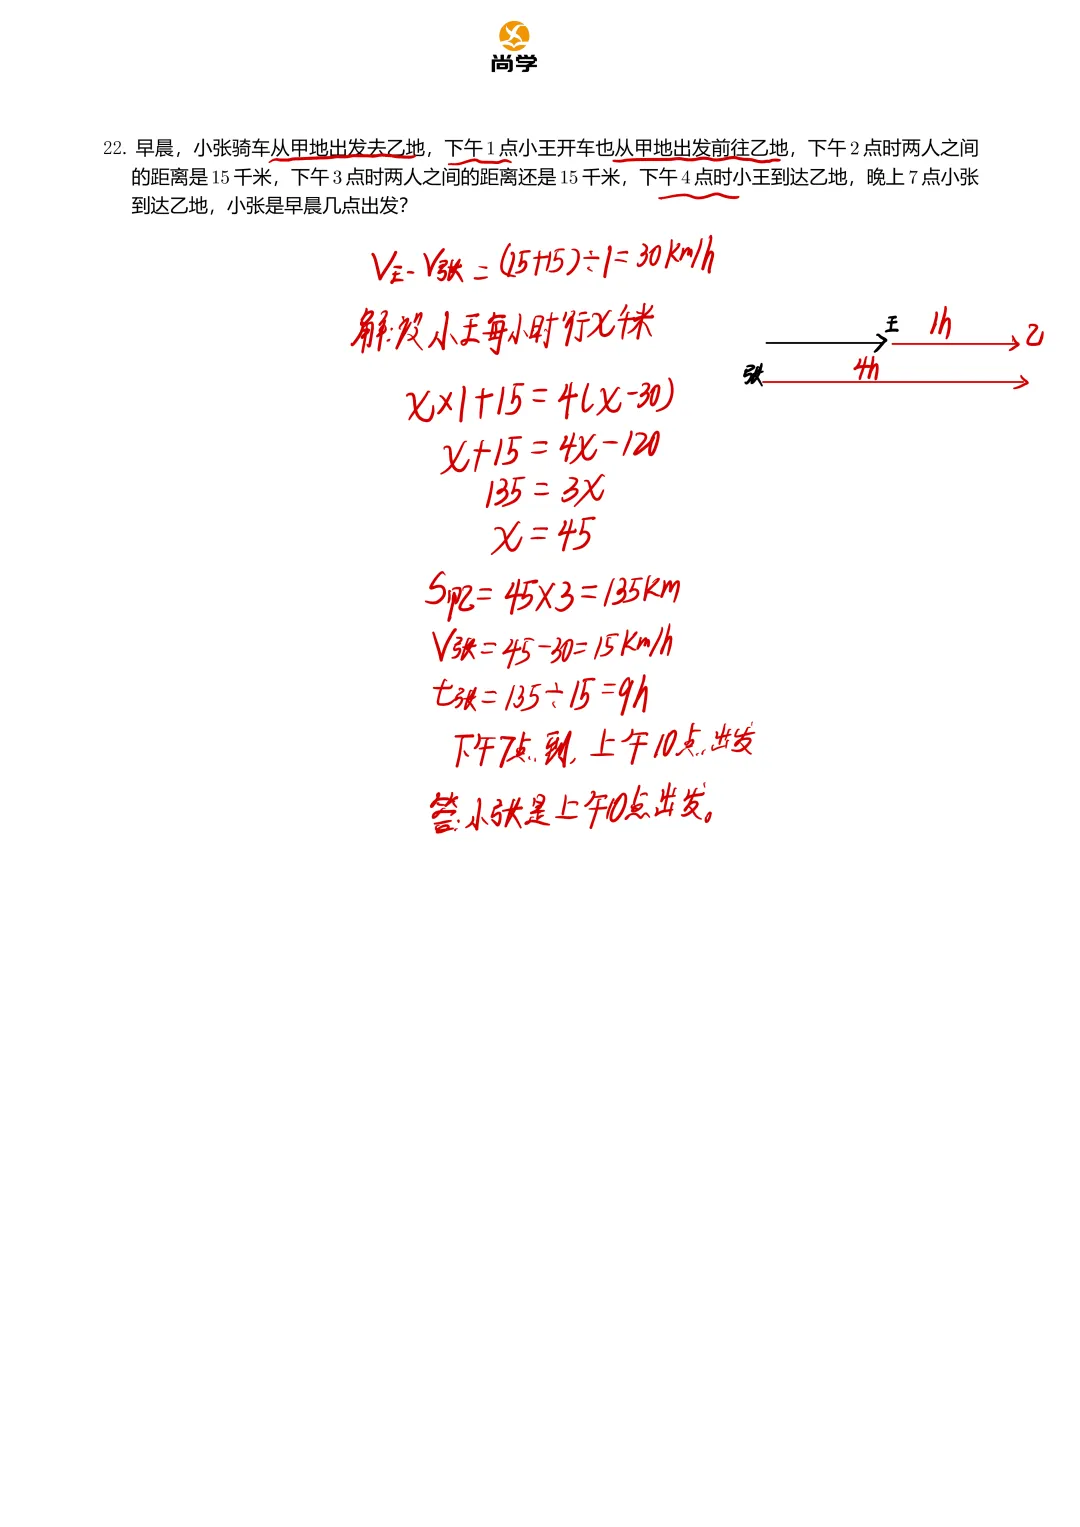 尚学
22. 早晨，小张骑车从甲地出发去乙地，下午 1 点小王开车也从甲地出发前往乙地，下午 2 点时两人之间
的距离是 15 千米，下午 3 点时两人之间的距离还是 15 千米，下午 4 点时小王到达乙地，晚上 7 点小张
到达乙地，小张是早晨几点出发？
V王-V张=(15+15)÷1=30km/h
解:设小王每小时行x千米
王 1h 乙
张 4h
x×1+15=4(x-30)
x+15=4x-120
135=3x
x=45
S甲乙=45×3=135km
V张=45-30=15km/h
t张=135÷15=9h
下午7点到,上午10点出发
答:小张是上午10点出发。